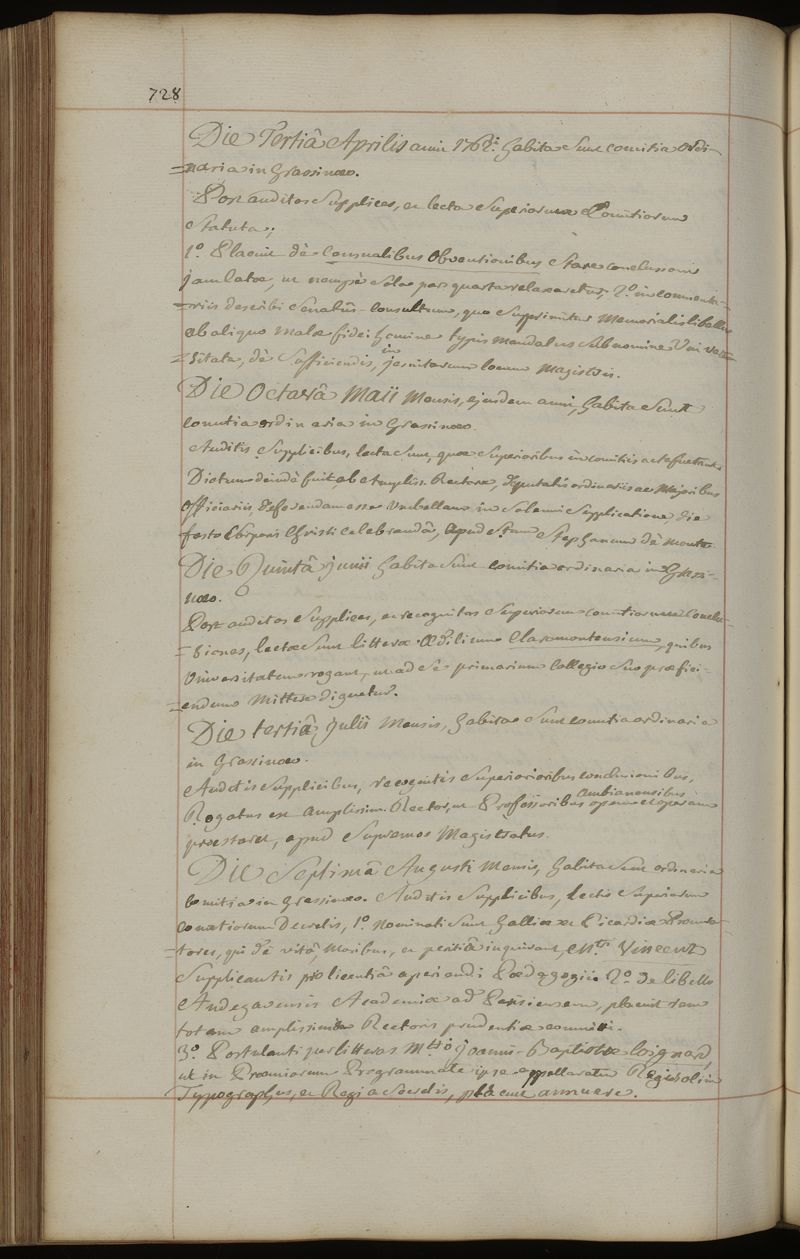 728
Die Tertiâ Aprilis anni 1762.i habita sunt comitia ordi-
=naria in Grassinæo.
Post auditos supplices, et lecta superiorum Comitiorum
Statuta;
1.o Placuit dè Censualibus obventionibus stare conclusioni
jam latæ, ut nempè solæ pars quarta relaxaretur; 2.o in commenta-
=riis describi Senatûs-Consultum, quo supprimitur Memorialis libellus
ab aliquo malæ fidei homine typis mandatus sub nomine Univer-
=sitatis, dè sufficiendis, in jesuitarum locum Magistris.
Die Octavâ Maii Mensis, ejusdem anni, habita sunt
comitia ordinaria in Grassinæo.
Auditis supplicibus, lecta sunt, quæ superioribus in comitiis acta fuerant
Dictum deindè fuit ab Ampliss. Rectore, deputatis ordinariis ac Majoribus
officiariis, deferendam esse Umbellam in solemni supplicatione, die
festo Corporis Christi celebrandâ, apud S.tum Stephanum dè monte.
Die Quintâ junii habita sunt comitia ordinaria in Grassi-
næo.
Post auditos supplices, et recognitas superiorum comitiorum Conclu-
=siones, lectæ sunt litteræ Ædilium Claromontensium, quibus
Universitatem rogant, ut ad se primarium Collegio suo præfici-
=endum mittere dignetur.
Die tertiâ Julii Mensis, habita sunt comitia ordinaria
in Grassinæo.
Auditis supplicibus, recognitis superioribus conclusionibus,
Rogatus est Amplissim. Rector, ut Professoribus Ambianensibus opem et operam
præstaret, apud supremos Magistratus.
Die Septimâ Augusti Mensis, habita sunt ordinaria
Comitia in Grassinæo. Auditis supplicibus, lectis superiorum
comitiorum Decretis, 1.o nominati sunt Galliæ et Picardiæ Procura-
=tores, qui dè vitâ, moribus, et peritiâ inquirant, M.tri Vincent
supplicantis pro licentiâ aperiendi Pædagogii 2.o De libello
Andegavensis Academiæ ad Parisiensem, placuit rem
totam amplissimi Rectoris prudentiæ committi.
3.o Postulanti per litteras M.tro Joanni-Baptistæ Coignard,
ut in Præmiorum Programmate ipse appellaretur Regis olim
Typographus, et Regi a Secretis, placuit annuere.